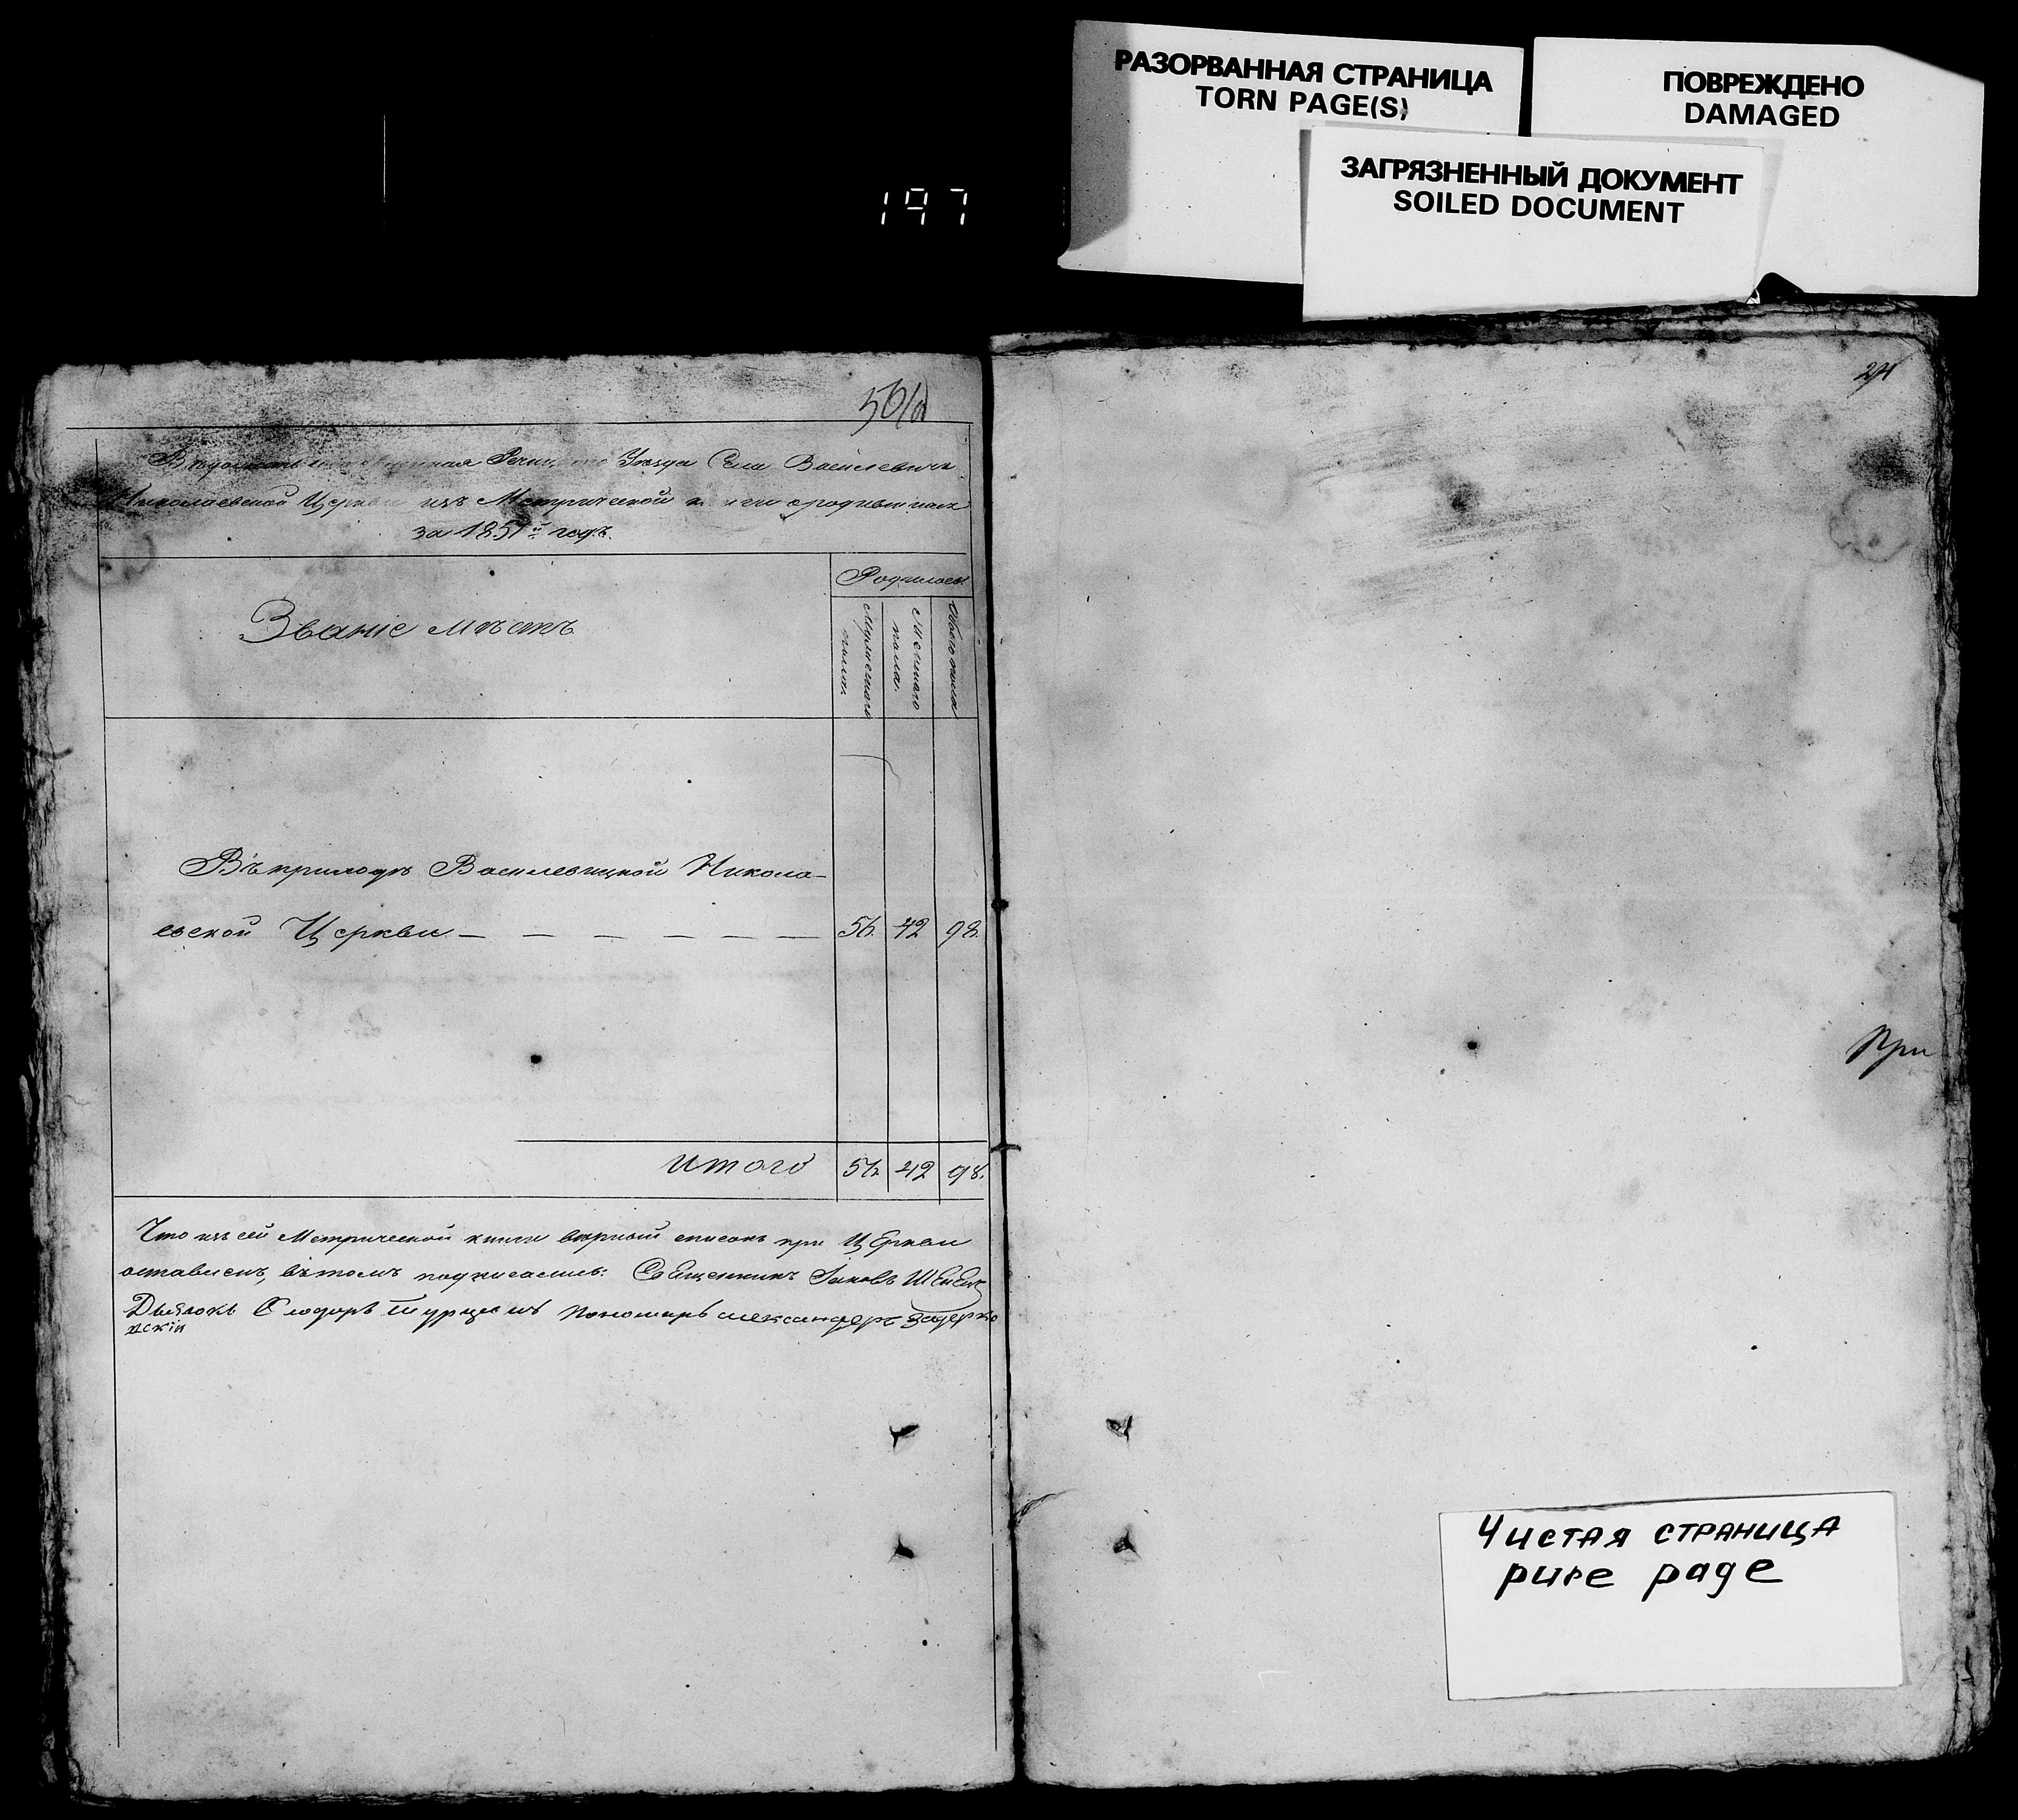 РАЗОРВАННАЯ СТРАНИЦА
TORN PAGE(S)
ПОВРЕЖДЕНО
DAMAGED
ЗАГРЯЗНЕННЫЙ ДОКУМЕНТ
SOILED DOCUMENT
197
Вѣдомость Уѣзда Села Василевичь
Николаевской Церкви изъ Метрической о родившихся
за 1851й годъ.
Званіе мѣстъ
Родилось
Мужескаго пола.
Женскаго пола.
Обоего пола
Въ приходѣ Василевицкой Никола-
евской Церкви — — — — — — 56. 42 98.
Итого 56. 42 98.
Что изъ сей Метрической книги вѣрный списокъ при Церкви
оставленъ, въ томъ подписались: Священникъ Іаковъ
Дьячокъ Пономарь Александеръ
вскій
При
Чистая страница
pure page